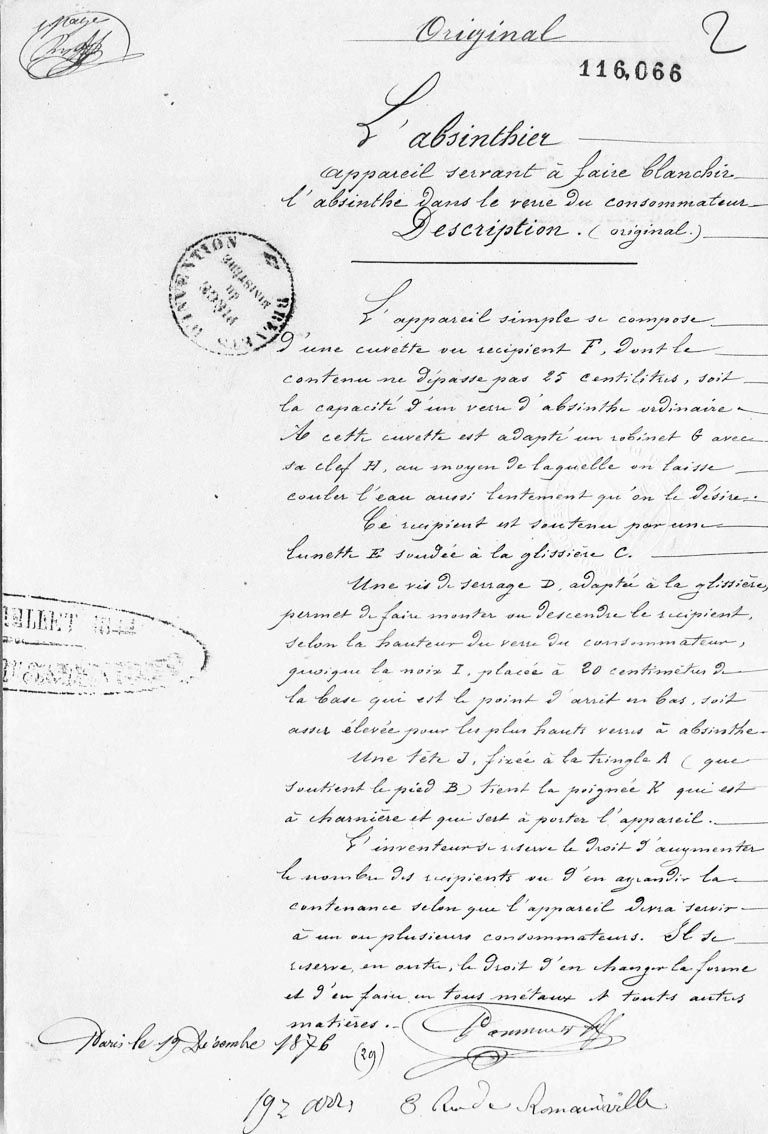 Original
2
116,066
L'absinthier
appareil servant à faire blanchir
l'absinthe dans le verre du consommateur
Description. (original.)
BREVETS D'INVENTION
MINISTÈRE
DU
L'appareil simple se compose
d'une cuvette ou recipient F, dont le
contenu ne dépasse pas 25 centilitres, soit
la capacité d'un verre d'absinthe ordinaire.
A cette cuvette est adapté un robinet G avec
sa clef H, au moyen de laquelle on laisse
couler l'eau aussi lentement qu'on le désire.
Ce recipient est soutenu par une
lunette E soudée à la glissière C.
Une vis de serrage D, adaptée à la glissière,
permet de faire monter ou descendre le recipient,
selon la hauteur du verre du consommateur,
quoique la noix I, placée à 20 centimètres de
la base qui est le point d'arrêt en bas, soit
assez élevée pour les plus hauts verres à absinthe.
Une tête J, fixée à la tringle A (que
soutient le pied B) tient la poignée K qui est
à charnière et qui sert à porter l'appareil.
L'inventeur se reserve le droit d'augmenter
le nombre des recipients ou d'en agrandir la
contenance selon que l'appareil devra servir
à un ou plusieurs consommateurs. Il se
reserve, en outre, le droit d'en changer la forme
et d'en faire en tous métaux et touts autres
matières.
Paris le 19 Décembre 1876
(29)
8 Rue de Romainville